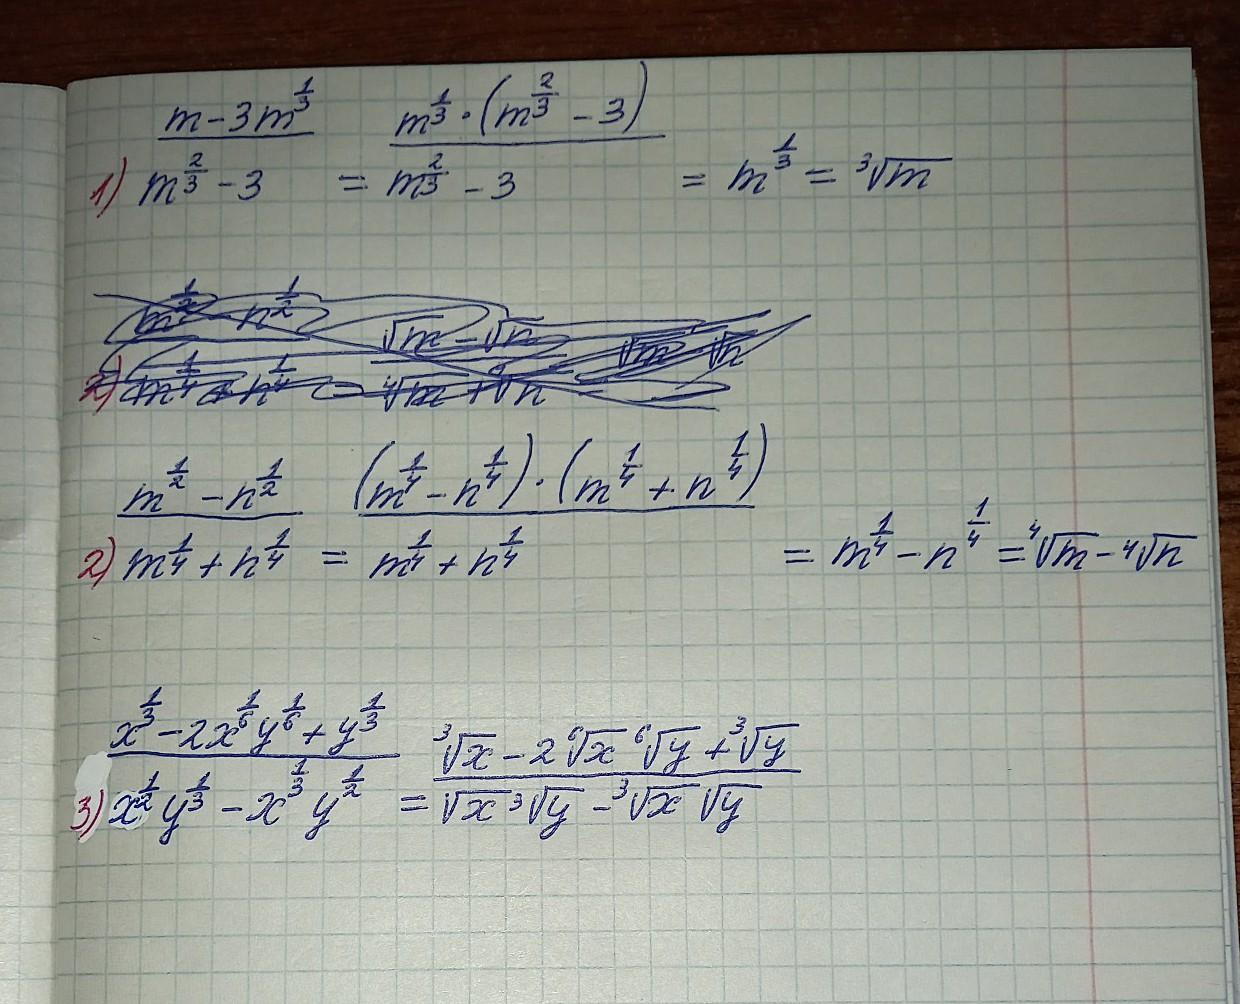 1) (m - 3m^(1/3)) / (m^(2/3) - 3) = (m^(1/3) · (m^(2/3) - 3)) / (m^(2/3) - 3) = m^(1/3) = ³√m
2) (m^(1/2) - n^(1/2)) / (m^(1/4) + n^(1/4)) = (√m - √n) / (⁴√m + ⁴√n)
2) (m^(1/2) - n^(1/2)) / (m^(1/4) + n^(1/4)) = ((m^(1/4) - n^(1/4)) · (m^(1/4) + n^(1/4))) / (m^(1/4) + n^(1/4)) = m^(1/4) - n^(1/4) = ⁴√m - ⁴√n
3) (x^(1/3) - 2x^(1/6)y^(1/6) + y^(1/3)) / (x^(1/2)y^(1/3) - x^(1/3)y^(1/2)) = (³√x - 2⁶√x ⁶√y + ³√y) / (√x ³√y - ³√x √y)